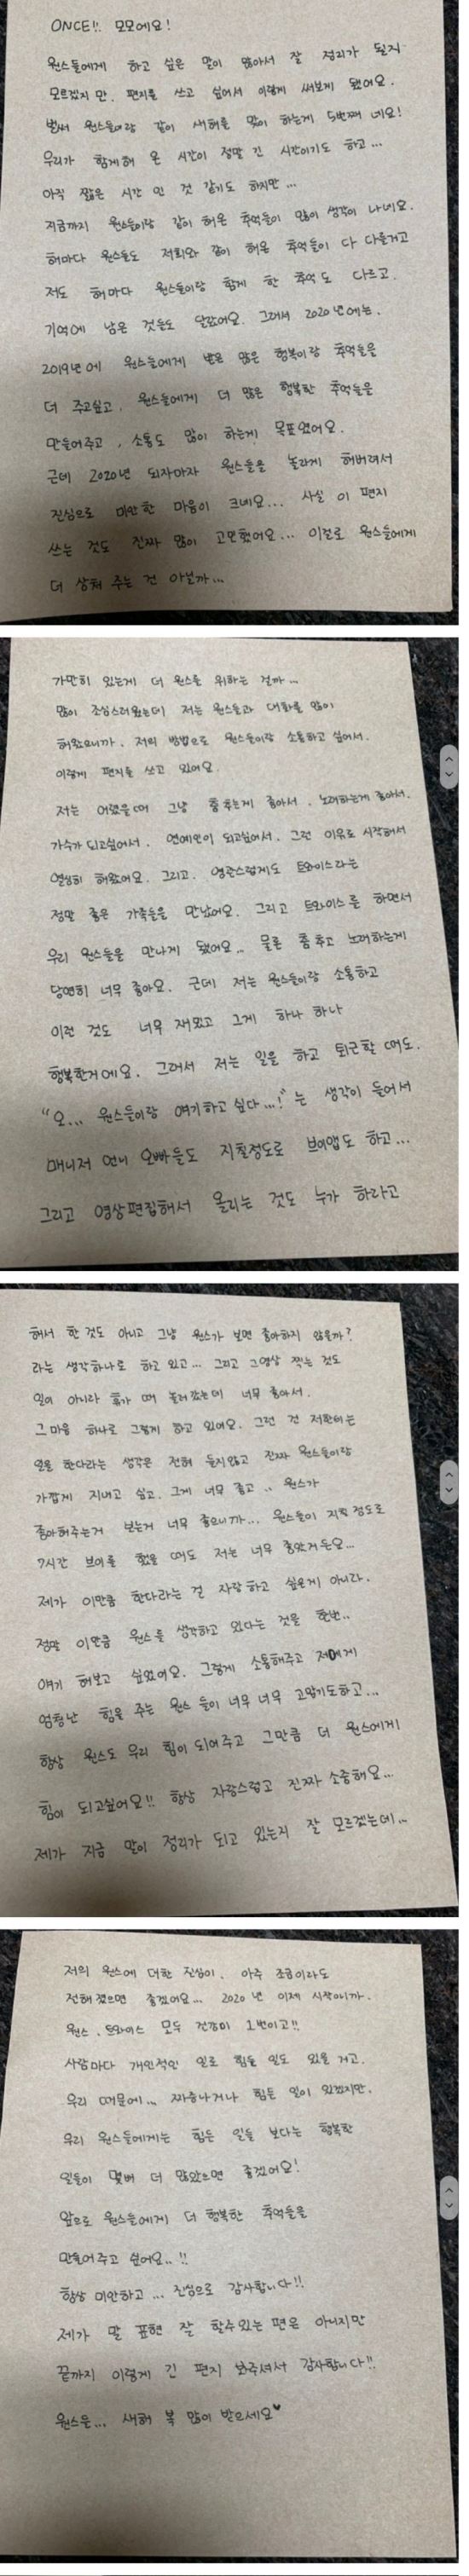 ONCE!! 모모에요!
원스들에게 하고 싶은 말이 많아서 잘 정리가 될지
모르겠지 만. 편지를 쓰고 싶어서 이렇게 써보게 됐어요.
벌써 원스들이랑 같이 새해를 맞이 하는게 5번째 네요!
우리가 함께해 온 시간이 정말 긴 시간이기도 하고...
아직 짧은 시간 인 것 같기도 하지만...
지금까지 원스들이랑 같이 해온 추억들이 많이 생각이 나네요.
해마다 원스들도 저희와 같이 해온 추억들이 다 다를거고
저도 해마다 원스들이랑 함께 한 추억도 다르고.
기억에 남은 것들도 달랐어요. 그래서 2020년에는.
2019년에 원스들에게 받은 많은 행복이랑 추억들을
더 주고싶고. 원스들에게 더 많은 행복한 추억들을
만들어주고, 소통도 많이 하는게 목표였어요.
근데 2020년 되자마자 원스들을 놀라게 해버려서
진심으로 미안한 마음이 크네요... 사실 이 편지
쓰는 것도 진짜 많이 고민했어요... 이걸로 원스들에게
더 상처 주는 건 아닐까...
가만히 있는게 더 원스를 위하는 걸까...
많이 조심스러웠는데 저는 원스들과 대화를 많이
해왔으니까. 저의 방법으로 원스들이랑 소통하고 싶어서.
이렇게 편지를 쓰고 있어요.
저는 어렸을때 그냥 춤추는게 좋아서. 노래하는게 좋아서.
가수가 되고싶어서. 연예인이 되고싶어서. 그런 이유로 시작해서
열심히 해왔어요. 그리고. 영광스럽게도 트와이스라는
정말 좋은 가족들을 만났어요. 그리고 트와이스를 하면서
우리 원스들을 만나게 됐어요.. 물론 춤추고 노래하는게
당연히 너무 좋아요. 근데 저는 원스들이랑 소통하고
이런 것도 너무 재밌고 그게 하나 하나
행복한거에요. 그래서 저는 일을 하고 퇴근할 때도.
"오... 원스들이랑 얘기하고 싶다...!" 는 생각이 들어서
매니저 언니 오빠들도 지칠정도로 브이앱도 하고...
그리고 영상편집해서 올리는 것도 누가 하라고
해서 한 것도 아니고 그냥 원스가 보면 좋아하지 않을까?
라는 생각하나로 하고 있고... 그리고 그영상 찍는 것도
일이 아니라 휴가 때 놀러갔는데 너무 좋아서.
그 마음 하나로 그렇게 하고 있어요. 그런 건 저한테는
일을 한다라는 생각은 전혀 들지않고 진짜 원스들이랑
가깝게 지내고 싶고. 그게 너무 좋고.. 원스가
좋아해주는거 보는거 너무 좋으니까... 원스들이 지칠 정도로
7시간 브이를 했을 때도 저는 너무 좋았거든요...
제가 이만큼 한다라는 걸 자랑하고 싶은게 아니라.
정말 이만큼 원스를 생각하고 있다는 것을 한번..
얘기 해보고 싶었어요. 그렇게 소통해주고 저에게
엄청난 힘을 주는 원스 들이 너무 너무 고맙기도하고...
항상 원스도 우리 힘이 되어주고 그만큼 더 원스에게
힘이 되고싶어요!! 항상 자랑스럽고 진짜 소중해요...
제가 지금 말이 정리가 되고 있는지 잘 모르겠는데...
저의 원스에 대한 진심이. 아주 조금이라도
전해 졌으면 좋겠어요... 2020년 이제 시작이니까.
원스. 트와이스 모두 건강이 1번이고!!
사람마다 개인적인 일로 힘들 일도 있을 거고.
우리 때문에... 짜증나거나 힘든 일이 있겠지만.
우리 원스들에게는 힘든 일들 보다는 행복한
일들이 몇배 더 많았으면 좋겠어요!
앞으로 원스들에게 더 행복한 추억들을
만들어 주고 싶어요..!!
항상 미안하고... 진심으로 감사합니다!!
제가 말 표현 잘 할수있는 편은 아니지만
끝까지 이렇게 긴 편지 봐주셔서 감사합니다!!
원스들... 새해 복 많이 받으세요♥